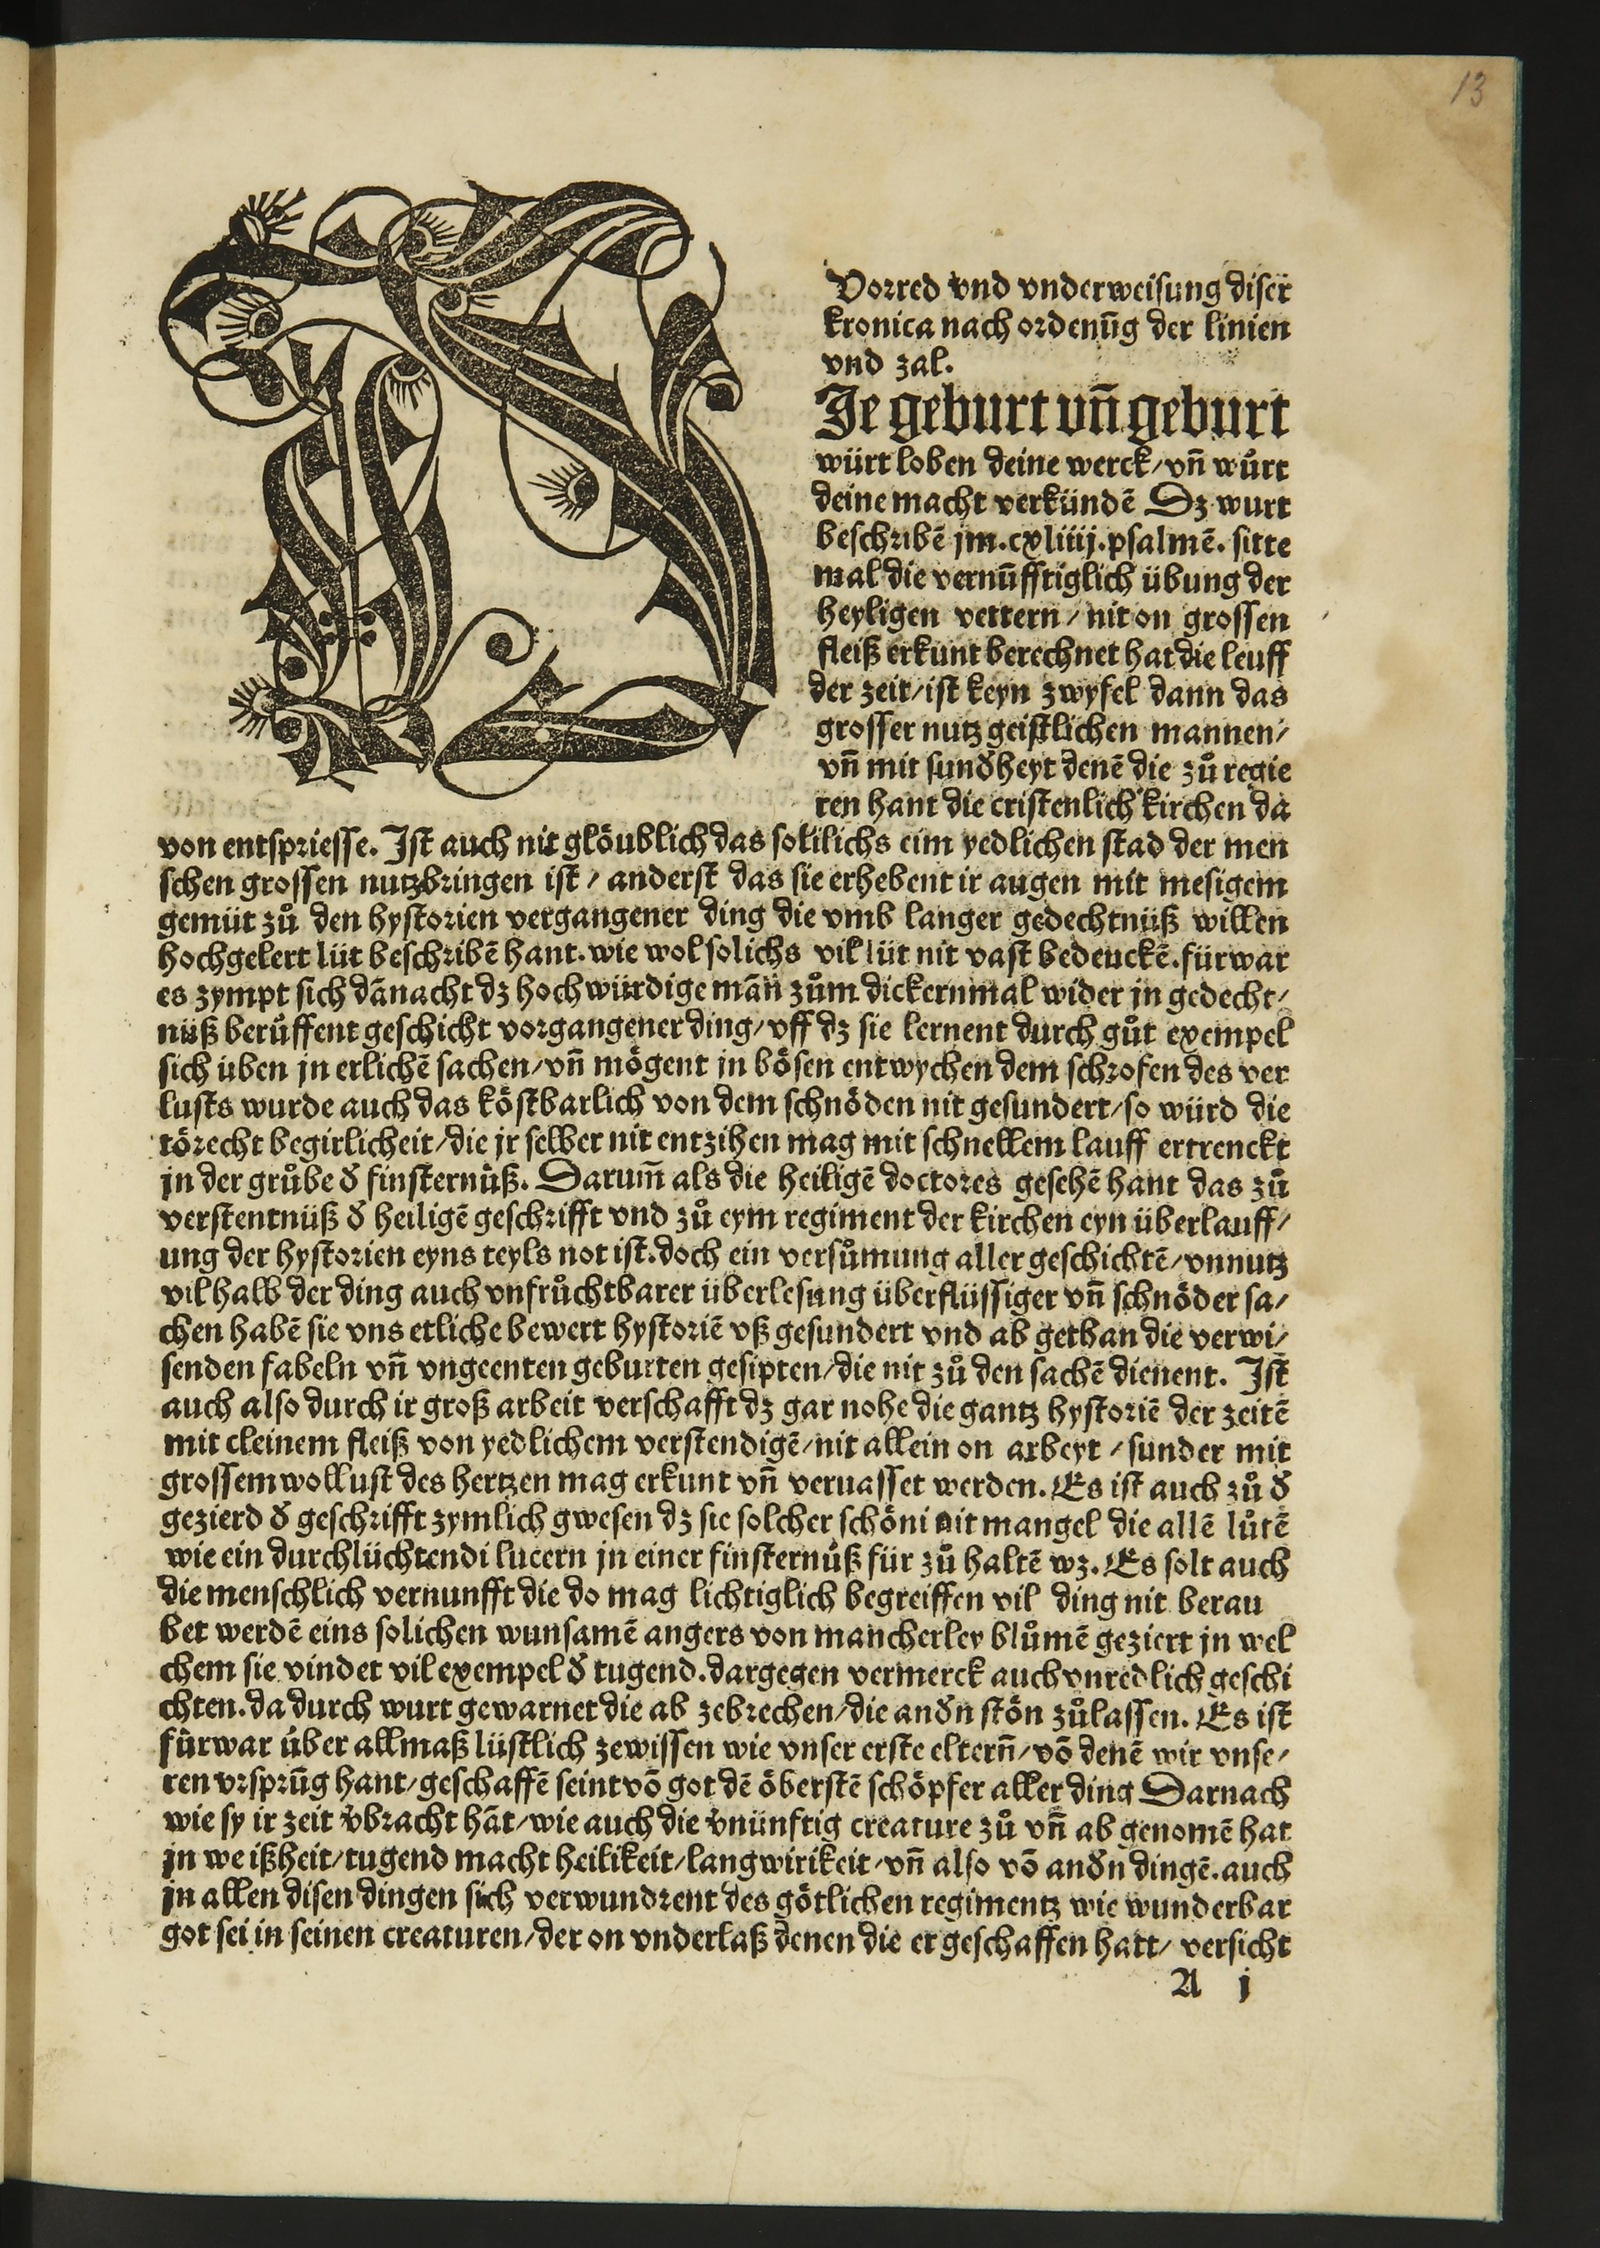 13
Vorred vnd vnderweisung diser
kronica nach ordenūg der linien
vnd zal.
DJe geburt vn̄ geburt
würt loben deine werck/vn̄ wůrt
deine macht verkündē Dz wurt
beschribē jm.cxliiij.psalmē. sitte
mal die vernūfftiglich übung der
heyligen vettern/nit on grossen
fleiß erkunt berechnet hat die leuff
der zeit/ist keyn zwyfel dann das
grosser nutz geistlichen mannen/
vn̄ mit sunđheyt denē die zů regie
ren hant die cristenlich kirchen da
von entspriesse. Jst auch nit glöublich das solilichs eim yedlichen stad der men
schen grossen nutzbringen ist/anderst das sie erhebent ir augen mit mesigem
gemüt zů den hystorien vergangener ding die vmb langer gedechtnüß willen
hochgelert lüt beschribē hant.wie wol solichs vil lüt nit vast bedenckē.fürwar
es zympt sich dānacht dz hochwürdige mān zům dickernmal wider in gedecht/
nüß berůffent geschicht vorgangener ding/vff dz sie lernent durch gůt exempel
sich üben jn erlichē sachen/vn̄ mögent jn bösen entwychen dem schrofen des ver
lusts wurde auch das köstbarlich von dem schnöden nit gesundert/so würd die
törecht begirlicheit/die jr selber nit entzihen mag mit schnellem lauff ertrenckt
jn der grůbe đ finsternůß. Darum̄ als die heiligē doctores gesehē hant das zů
verstentnüß đ heiligē geschrifft vnd zů eym regiment der kirchen eyn überlauff/
ung der hystorien eyns teyls not ist.doch ein versůmung aller geschichtē/vnnutz
vilhalb der ding auch vnfrůchtbarer überlesung überflüssiger vn̄ schnöder sa/
chen habē sie vns etliche bewert hystoriē vß gesundert vnd ab gethan die verwi/
senden fabeln vn̄ vngeenten geburten gesipten/die nit zů den sachē dienent. Jst
auch also durch ir groß arbeit verschafft dz gar nohe die gantz hystoriē der zeitē
mit cleinem fleiß von yedlichem verstendigē/nit allein on arbeyt/sunder mit
grossem wollust des hertzen mag erkunt vn̄ veruasset werden. Es ist auch zů đ
gezierd đ geschrifft zymlich gwesen dz sie solcher schöni nit mangel die allē lůtē
wie ein durchlüchtendi lucern jn einer finsternůß für zů haltē wz. Es solt auch
die menschlich vernunfft die do mag lichtiglich begreiffen vil ding nit berau
bet werdē eins solichen wunsamē angers von mancherley blůmē geziert jn wel
chem sie vindet vil exempel đ tugend.dargegen vermerck auch vnredlich geschi
chten.da durch wurt gewarnet die ab zebrechen/die anđn stön zůlassen. Es ist
fürwar über allmaß lüstlich zewissen wie vnser erste eltern̄/vō denē wir vnse/
ren vrsprūg hant/geschaffē seint vō got dē öberstē schöpfer aller ding Darnach
wie sy ir zeit v̊bracht hāt/wie auch die v̊nünftig creature zů vn̄ ab genomē hat
jn weißheit/tugend macht heilikeit/langwirikeit/vn̄ also vō anđn dingē.auch
jn allen disen dingen sich verwundrent des götlichen regimentz wie wunderbar
got sei in seinen creaturen/der on vnderlaß denen die er geschaffen hatt/ versicht
A j